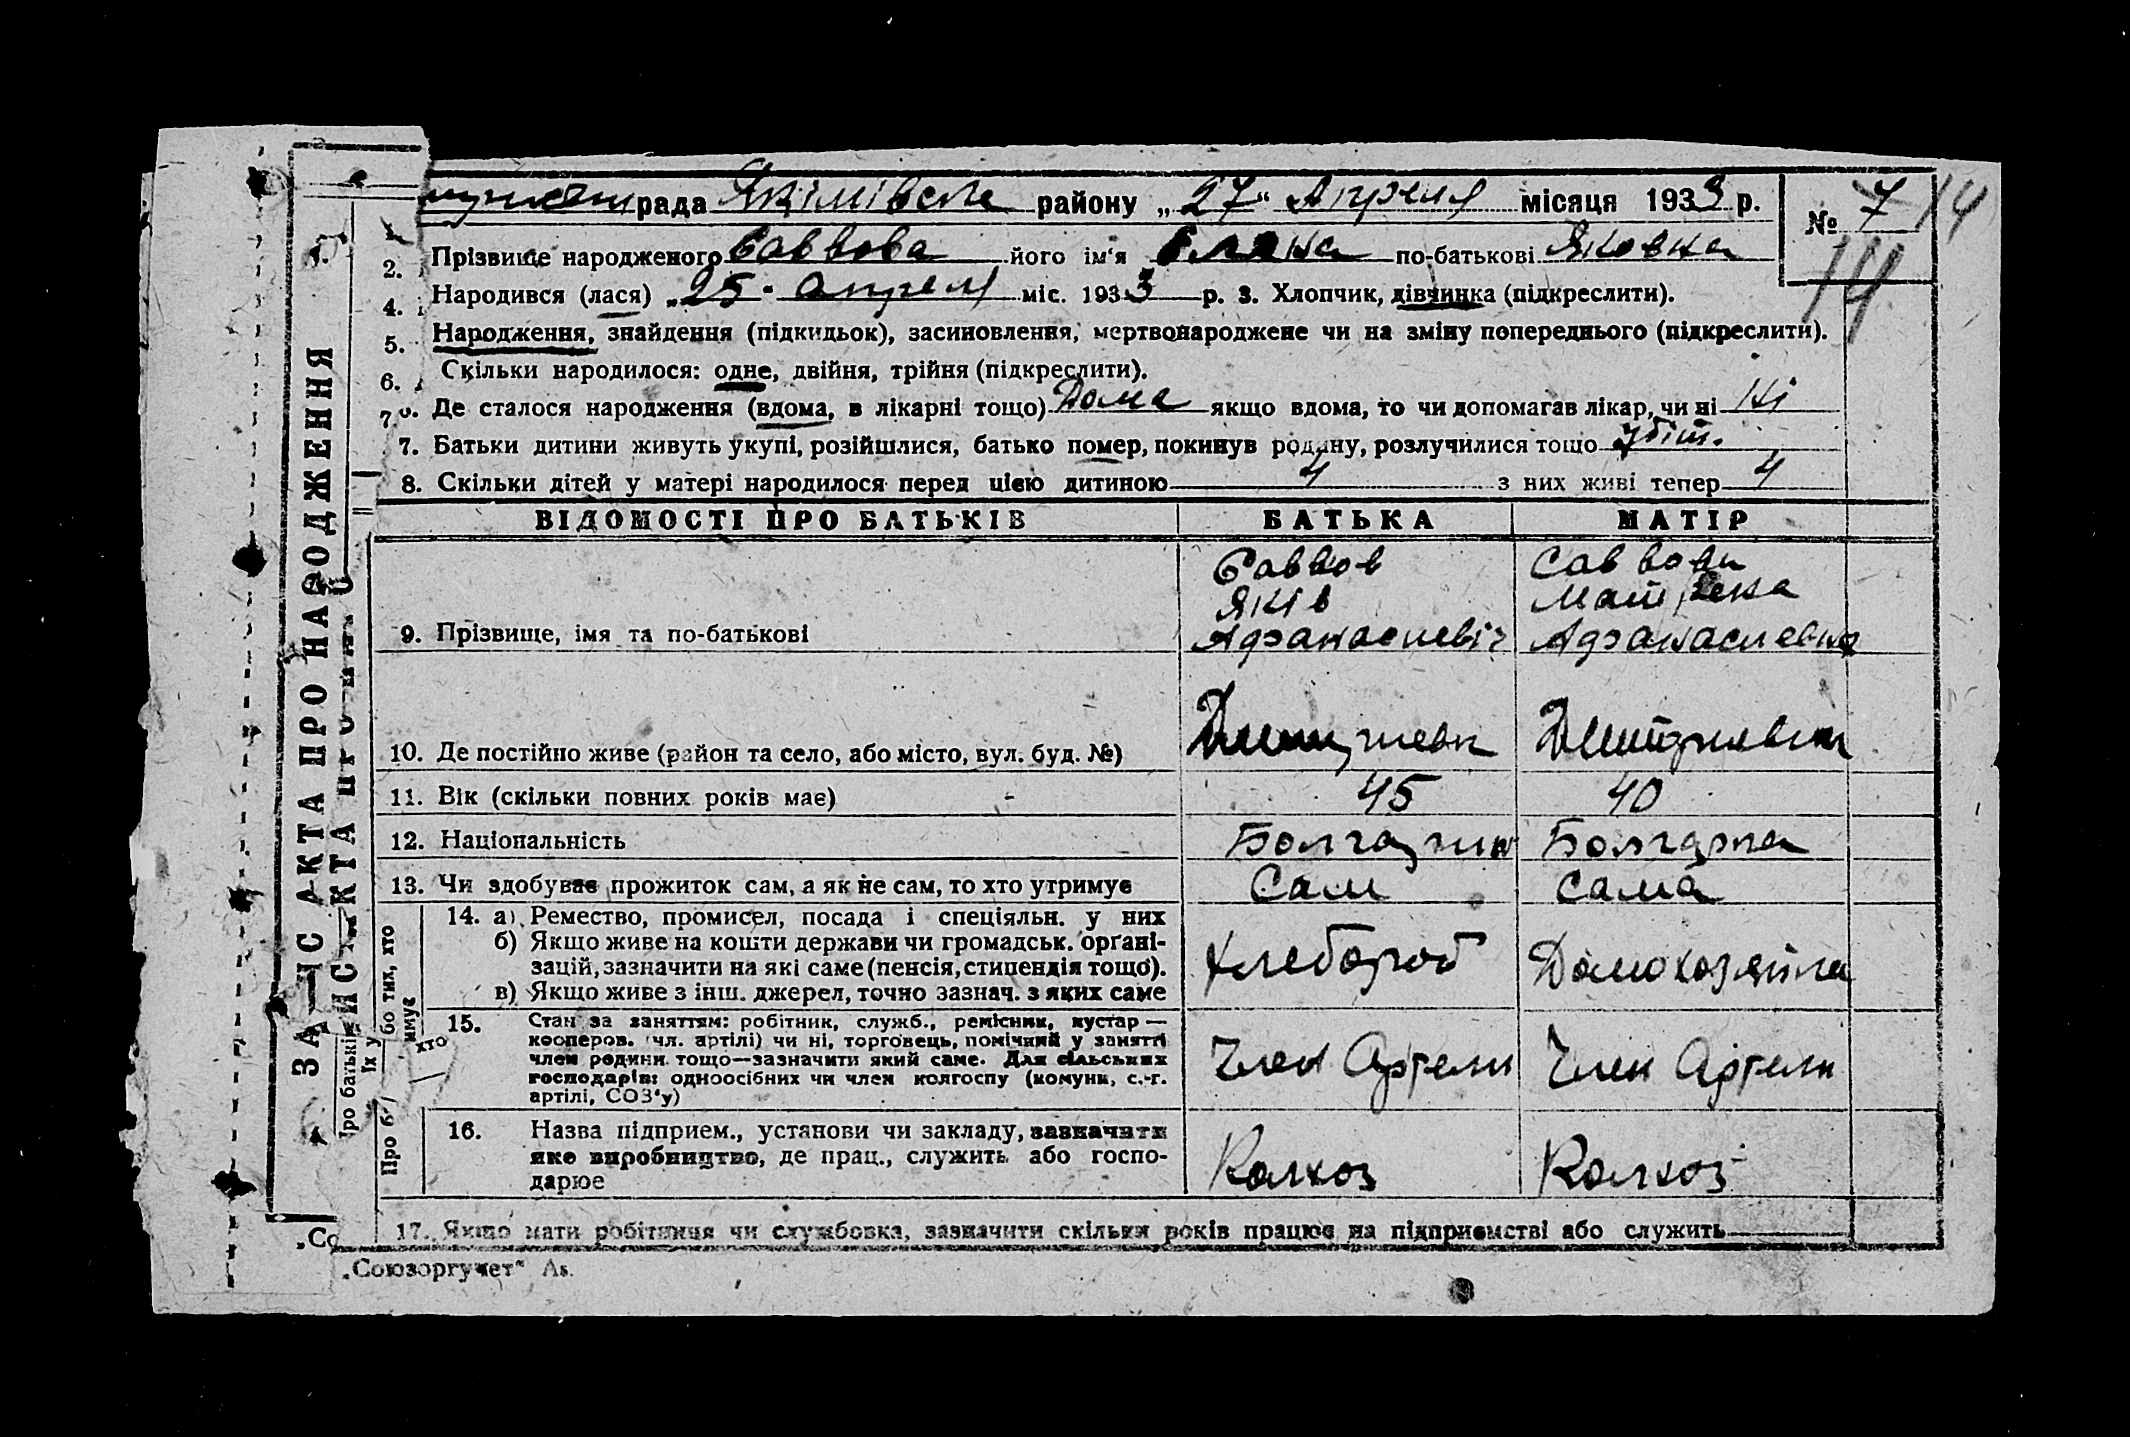 рада Якімівське району „27“ Апреля місяця 1933 р.
№ 7 14
14
Прізвище народженого Саввова його ім'я Елена по-батькові Яковна
2.
Народився (лася) „25“ Апреля міс. 1933 р. 3. Хлопчик, дівчинка (підкреслити).
4. Народження, знайдення (підкидьок), засиновлення, мертвонароджене чи на зміну попереднього (підкреслити).
5. Скільки народилося: одне, двійня, трійня (підкреслити).
6. Де сталося народження (вдома, в лікарні тощо) Дома якщо вдома, то чи допомагав лікар, чи ні Ні
7. Батьки дитини живуть укупі, розійшлися, батько помер, покинув родину, розлучилися тощо
8. Скільки дітей у матері народилося перед цією дитиною 4 з них живі тепер 4
ВІДОМОСТІ ПРО БАТЬКІВ БАТЬКА МАТІР
Саввов Саввова
Яків Матрена
9. Прізвище, імя та по-батькові Афанасиевіч Афанасиевна
10. Де постійно живе (район та село, або місто, вул. буд. №) Дмитриевк Дмитриевка
11. Вік (скільки повних років має) 45 40
12. Національність Болгарин Болгарка
13. Чи здобуває прожиток сам, а як не сам, то хто утримує Сам Сама
14. а) Ремество, промисел, посада і спеціяльн. у них
б) Якщо живе на кошти держави чи громадськ. орґані-
зацій, зазначити на які саме (пенсія, стипендія тощо). Хлебороб Домохозяйка
в) Якщо живе з інш. джерел, точно зазнач. з яких саме
15. Стан за заняттям: робітник, служб., ремісник, кустар —
кооперов. (чл. артілі) чи ні, торговець, помічний у занятті
член родини тощо—зазначити який саме. Для сільських Член Артели Член Артели
господарів: одноосібних чи член колгоспу (комуни, с.-г.
артілі, СОЗ'у)
16. Назва підприєм., установи чи закладу, зазначити
яке виробництво, де прац., служить або госпо- Колхоз Колхоз
дарює
17. Якщо мати робітниця чи службовка, зазначити скільки років працює на підприємстві або служить
„Союзоргучет“
ЗАПИС АКТА ПРО НАРОДЖЕННЯ